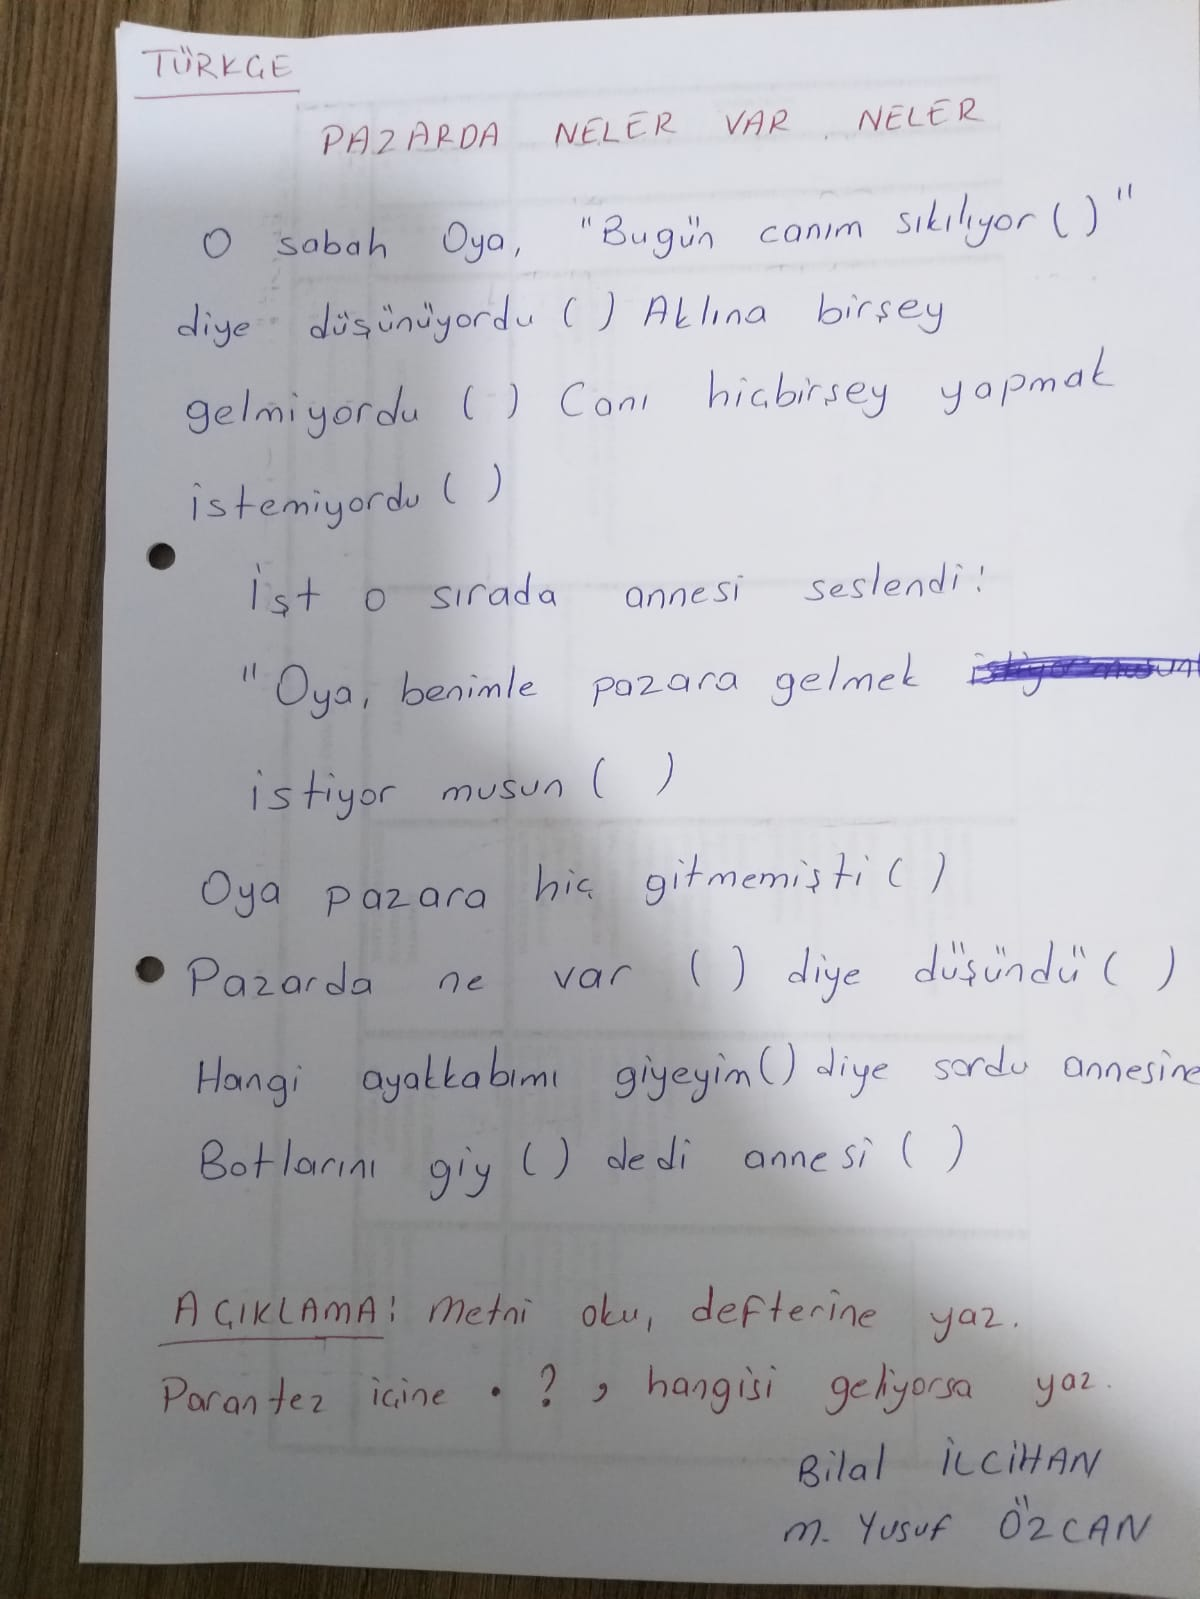 TÜRKÇE
PAZARDA NELER VAR NELER
O sabah Oya, "Bugün canım sıkılıyor ( )"
diye düşünüyordu ( ) Aklına birşey
gelmiyordu ( ) Canı hiçbirşey yapmak
istemiyordu ( )
İşt o sırada annesi seslendi:
"Oya, benimle pazara gelmek
istiyor musun ( )
Oya pazara hiç gitmemişti ( )
Pazarda ne var ( ) diye düşündü ( )
Hangi ayakkabımı giyeyim ( ) diye sordu annesine
Botlarını giy ( ) dedi annesi ( )
AÇIKLAMA: Metni oku, defterine yaz.
Parantez içine . ? , hangisi geliyorsa yaz.
Bilal İLCİHAN
M. Yusuf ÖZCAN